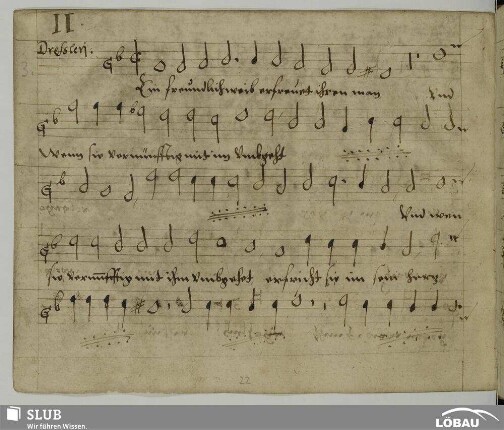 II
Dressleri.
Ein freundlich weib erfreuet ihren man Und
Wenn sie vernünfftig mit im Umbgeht
Und wen
sie vernünffig mit ihm umbgehet erfricht sie im sein hertz
22
SLUB
Wir führen Wissen.
LÖBAU